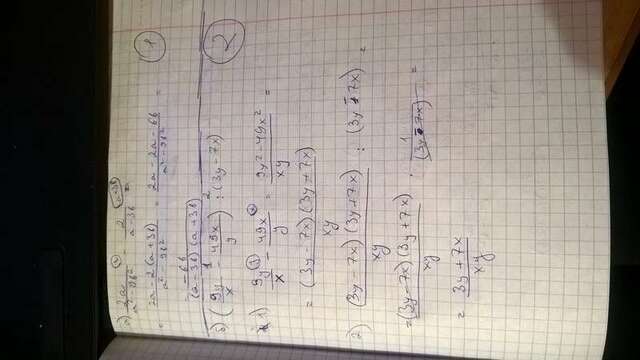 а) 2a / a² - 9b² - 2 / a - 3b (a+3b) =
= 2a - 2(a+3b) / a² - 9b² = 2a - 2a - 6b / a² - 9b² =
- 6b / (a - 3b)(a+3b)
1
б) (9y / x - 49x / y) : (3y - 7x)
2
1) 9y / x - 49x / y = 9y² - 49x² / xy =
= (3y - 7x)(3y + 7x) / xy
2) (3y - 7x)(3y + 7x) / xy : (3y - 7x) =
= (3y - 7x)(3y + 7x) / xy · 1 / (3y - 7x) =
= 3y + 7x / xy